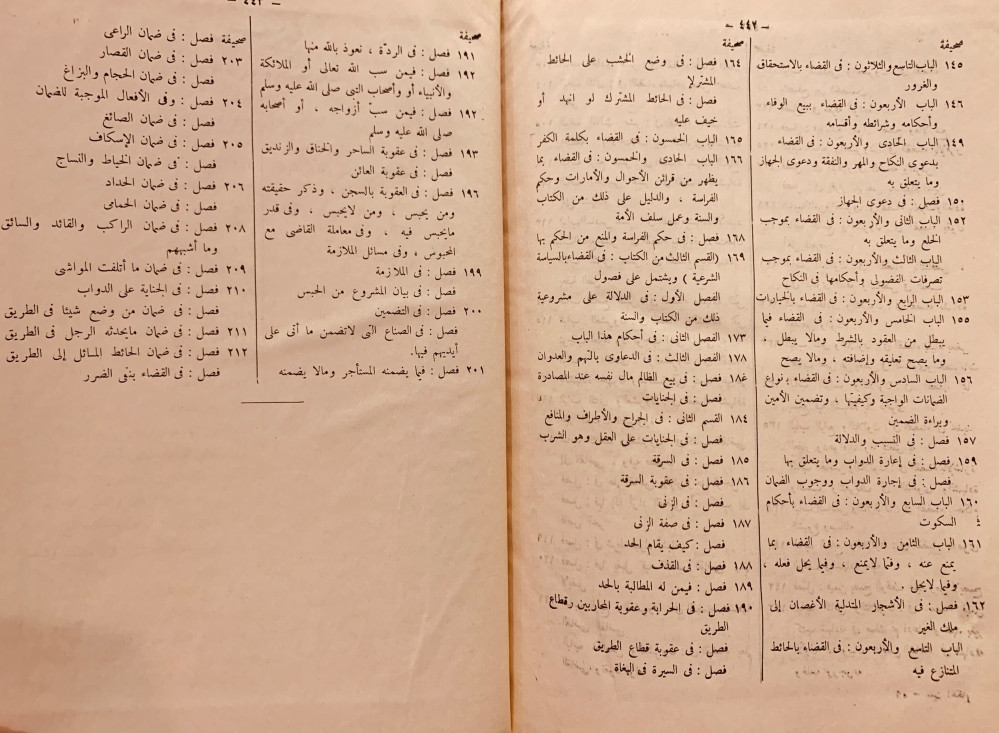 – ٤٤٢ –
صحيفة
١٤٥ الباب التاسع والثلاثون : فى القضاء بالاستحقاق
والغرور
١٤٦ الباب الأربعون : فى القضاء ببيع الوفاء
وأحكامه وشرائطه وأقسامه
١٤٩ الباب الحادى والأربعون : فى القضاء
بدعوى النكاح والمهر والنفقة ودعوى الجهاز
وما يتعلق به
١٥٠ فصل : فى دعوى الجهاز
١٥٢ الباب الثانى والأربعون : فى القضاء بموجب
الخلع وما يتعلق به
الباب الثالث والأربعون : فى القضاء بموجب
تصرفات الفضولى وأحكامها فى النكاح
١٥٣ الباب الرابع والأربعون : فى القضاء بالخيارات
١٥٥ الباب الخامس والأربعون : فى القضاء فيما
يبطل من العقود بالشرط وما لا يبطل ،
وما يصح تعليقه وإضافته ، ومالا يصح
١٥٦ الباب السادس والأربعون : فى القضاء بأنواع
الضمانات الواجبة وكيفيتها ، وتضمين الأمين
وبراءة الضمين
١٥٧ فصل : فى التسبب والدلالة
١٥٩ فصل : فى إعارة الدواب وما يتعلق بها
فصل : فى إجارة الدواب ووجوب الضمان
١٦٠ الباب السابع والأربعون : فى القضاء بأحكام
السكوت
١٦١ الباب الثامن والأربعون : فى القضاء بما
يمنع عنه ، وفيما لايمنع ، وفيما يحل فعله ،
وفيما لايحل .
١٦٢ فصل : فى الأشجار المتدلية الأغصان إلى
ملك الغير
الباب التاسع والأربعون : فى القضاء بالحائط
المتنازع فيه
صحيفة
١٦٤ فصل : فى وضع الخشب على الحائط
المشترك
فصل : فى الحائط المشترك لو انهد أو
خيف عليه
١٦٥ الباب الخمسون : فى القضاء بكلمة الكفر
١٦٦ الباب الحادى والخمسون : فى القضاء بما
يظهر من قرائن الأحوال والأمارات وحكم
الفراسة ، والدليل على ذلك من الكتاب
والسنة وعمل سلف الأمة
١٦٨ فصل : فى حكم الفراسة والمنع من الحكم بها
١٦٩ (القسم الثالث من الكتاب : فى القضاء بالسياسة
الشرعية ) ويشتمل على فصول
الفصل الأول : فى الدلالة على مشروعية
ذلك من الكتاب والسنة
١٧٣ الفصل الثانى : فى أحكام هذا الباب
١٧٨ الفصل الثالث : فى الدعاوى بالتهم والعدوان
١٨٤ فصل : فى بيع الظالم مال نفسه عند المصادرة
فصل : فى الجنايات
١٨٤ القسم الثانى : فى الجراح والأطراف والمنافع
فصل : فى الجنايات على العقل وهو الشرب
١٨٥ فصل : فى السرقة
١٨٦ فصل : فى عقوبة السرقة
فصل : فى الزنى
١٨٧ فصل : فى صفة الزنى
فصل : كيف يقام الحد
١٨٨ فصل : فى القذف
١٨٩ فصل : فيمن له المطالبة بالحد
١٩٠ فصل : فى الحرابة وعقوبة المحاربين وقطاع
الطريق
فصل : فى عقوبة قطاع الطريق
فصل : فى السيرة فى البغاة
– ٤٤٣ –
صحيفة
١٩١ فصل : فى الردّة ، نعوذ بالله منها
١٩٢ فصل : فيمن سب الله تعالى أو الملائكة
والأنبياء أو وأصحاب النبى صلى الله عليه وسلم
١٩٢ فصل : فيمن سبّ أزواجه ، أو أصحابه
صلى الله عليه وسلم
١٩٣ فصل : فى عقوبة الساحر والخناق والزنديق
فصل : فى عقوبة العائن
١٩٦ فصل : فى العقوبة بالسجن ، وذكر حقيقته
ومن يحبس ، ومن لايحبس ، وفى قدر
مايحبس فيه ، وفى معاملة القاضى مع
المحبوس ، وفى مسائل الملازمة
١٩٩ فصل : فى الملازمة
فصل : فى بيان المشروع من الحبس
٢٠٠ فصل : فى التضمين
فصل : فى الصناع التى لاتضمن ما أتى على
أيديهم فيها.
٢٠١ فصل : فيما يضمنه المستأجر ومالا يضمنه
صحيفة
فصل : فى ضمان الراعى
٢٠٣ فصل : فى ضمان القصار
فصل : فى ضمان الحجام والبزاغ
٢٠٤ فصل : وفى الأفعال الموجبة للضمان
فصل : فى ضمان الصائغ
٢٠٥ فصل : فى ضمان الإسكاف
فصل : فى ضمان الخياط والنساج
٢٠٦ فصل : فى ضمان الحداد
فصل : فى ضمان الحمامى
٢٠٨ فصل : فى ضمان الراكب والقائد والسائق
وما أشبههم
٢٠٩ فصل : فى ضمان ما أتلفت المواشى
٢١٠ فصل : فى الجناية على الدواب
فصل : فى ضمان من وضع شيئا فى الطريق
٢١١ فصل : فى ضمان مايحدثه الرجل فى الطريق
٢١٢ فصل : فى ضمان الحائط المسائل إلى الطريق
فصل : فى القضاء بنفى الضرر